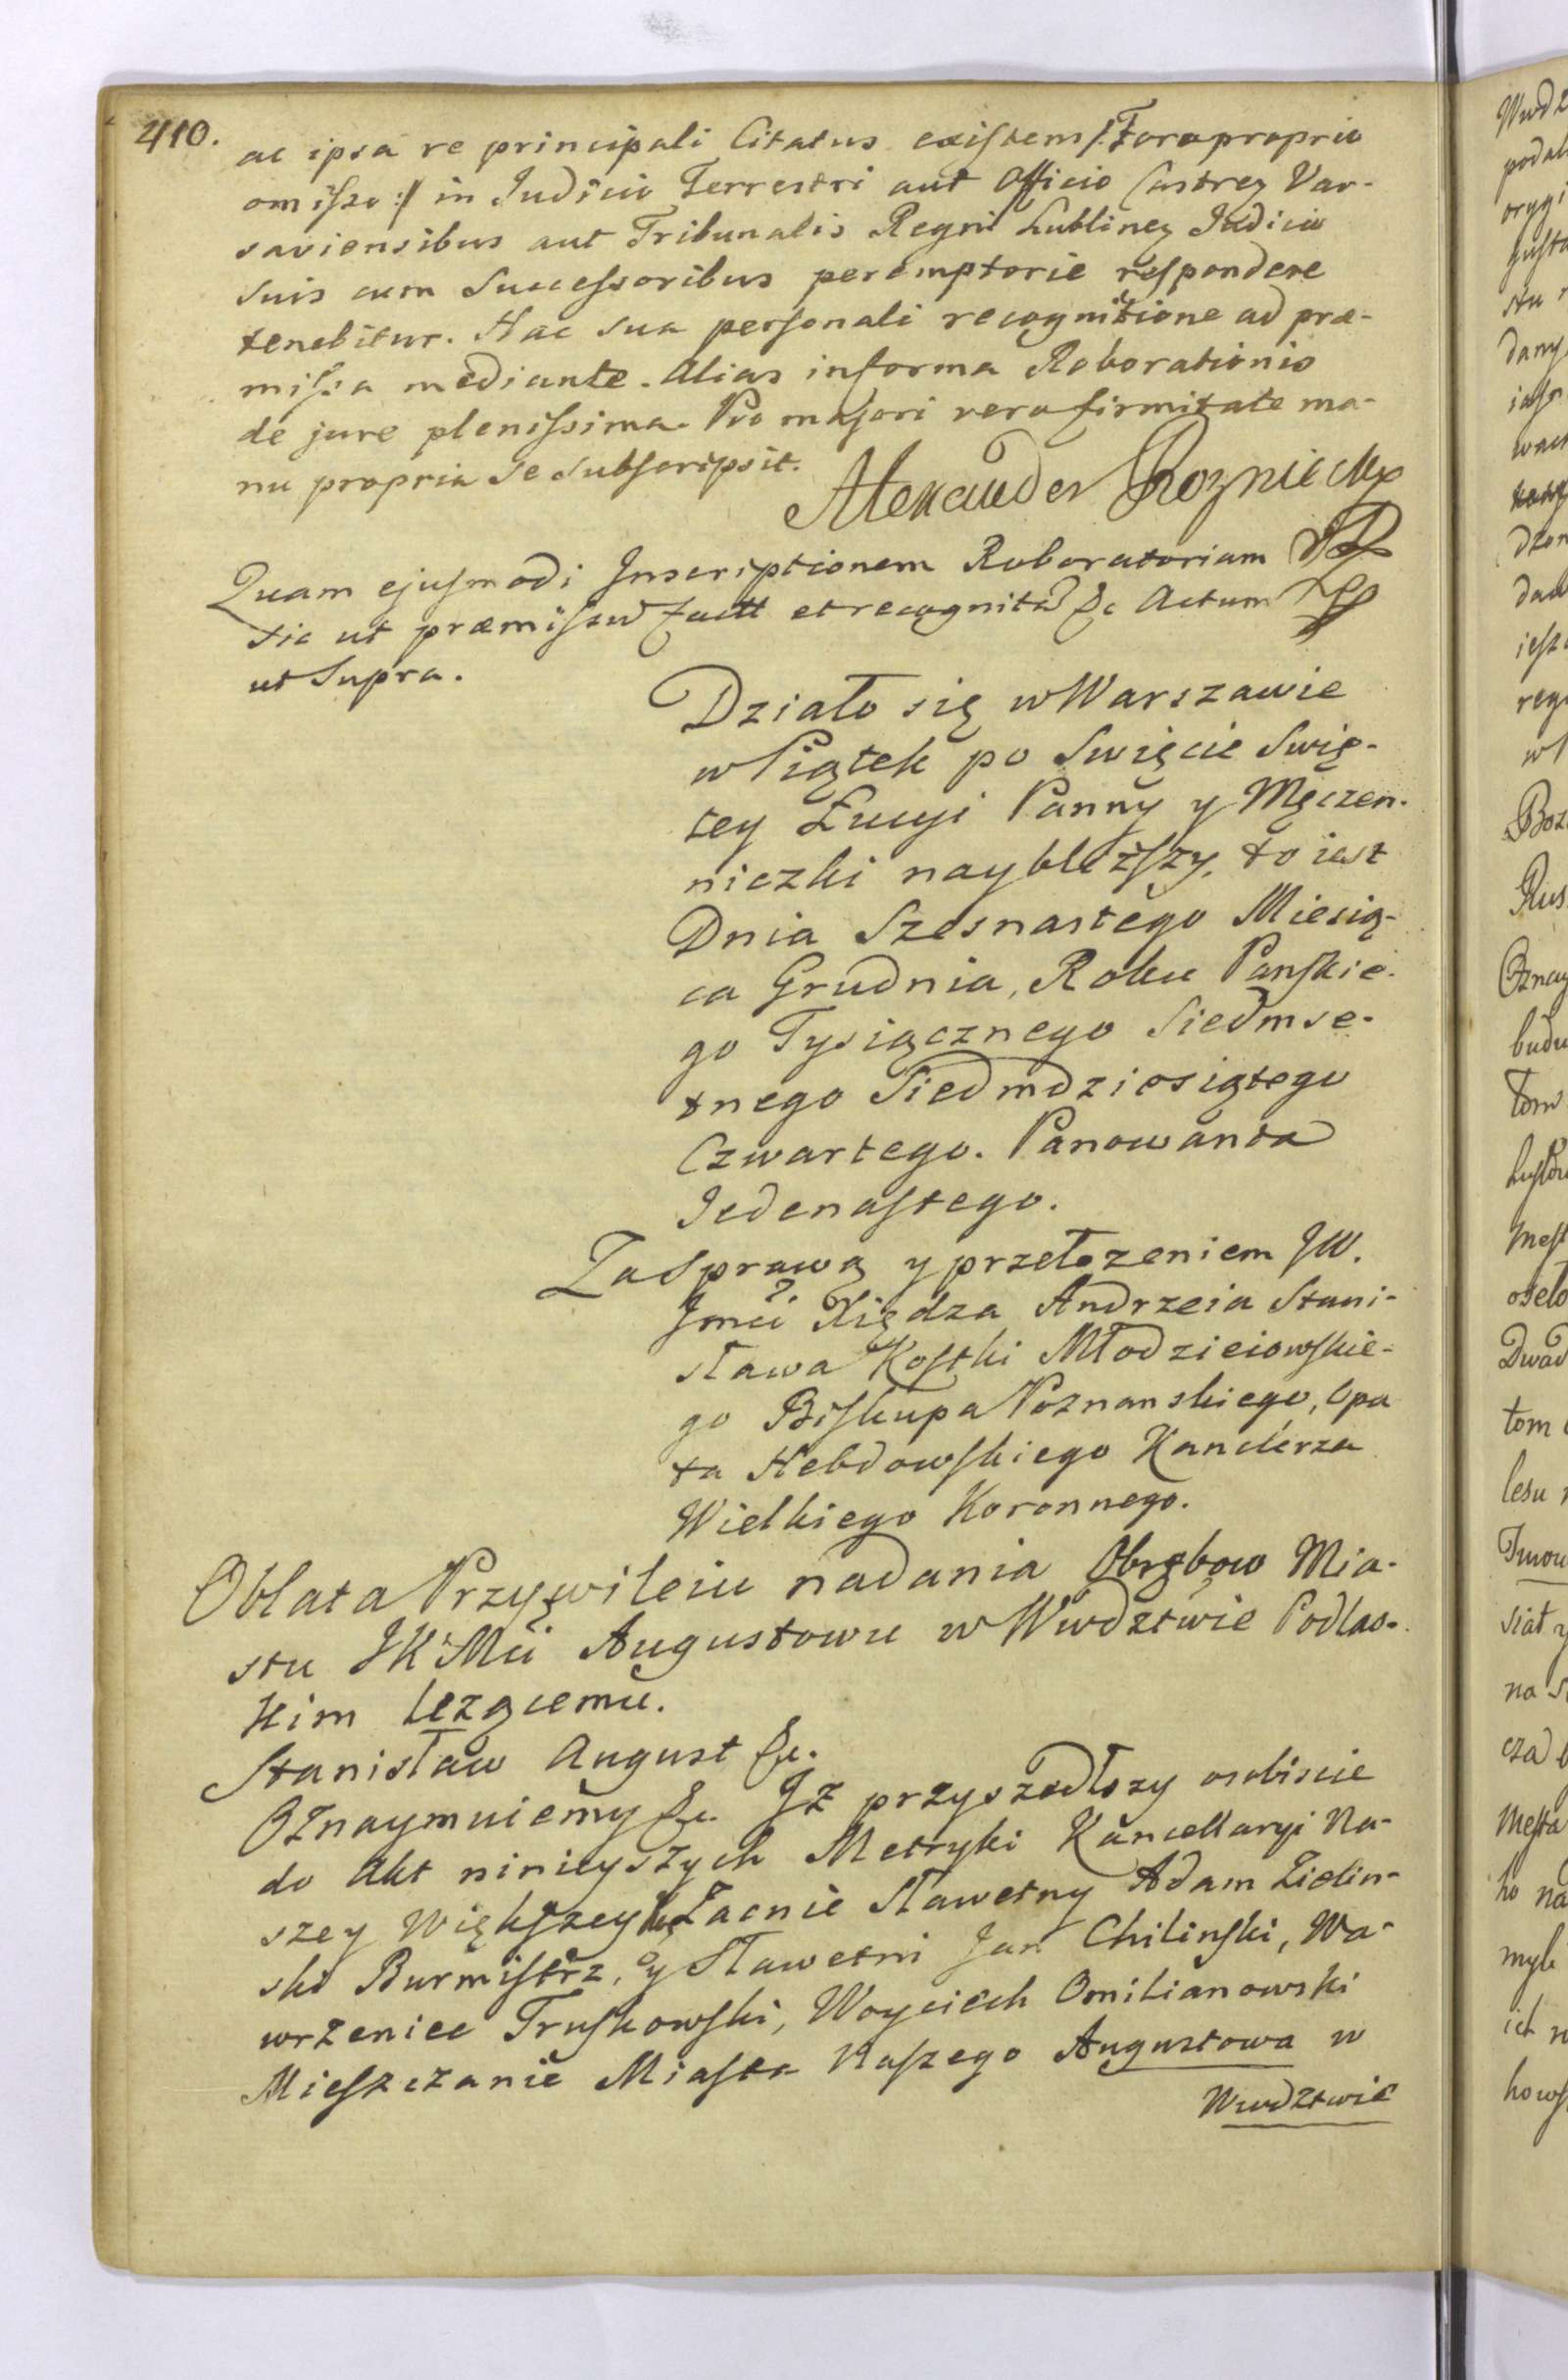 410.
ac ipsa re principali Citatus existens /: Foro proprio
omisso :/ in Judicio Terrestri aut Officio Castren Var-
saviensibus aut Tribunalis Regni Lublinen Judicio
suis cum Successoribus peremptorie respondere
tenebitur. Hac sua personali recognitione ad præ-
missa mediante. Alias in forma Roborationis
de jure plenissima. Pro majori vero firmitate ma-
nu propria se subscripsit.
Alexander Rozniecky
Quam ejusmodi Inscriptionem Roboratoriam
sic ut præmissum factt et recognit &c Actum
ut Supra.
Działo się w Warszawie
w Piątek po Swięcie Swię-
tey Łucyi Panny y Męczen-
niczki naybliższy, to iest
Dnia Szesnastego Miesią-
ca Grudnia, Roku Panskie-
go Tysiącznego Siedmse-
tnego Siedmdziesiątego
Czwartego. Panowania
Jedenastego.
Za Sprawą y przełożeniem JW.
Jmci Xiędza Andrzeia Stani-
sława Kostki Młodzieiowskie-
go Biskupa Poznanskiego, Opa
ta Hebdowskiego Kanclerza
Wielkiego Koronnego.
Oblata Przywileiu nadania Obrębow Mia-
stu JKMci Augustowu w Wwdztwie Podlas-
kim leżącemu.
Stanisław August &c.
Oznaymuiemy &c. Iż przyszedłszy osobiscie
do Akt ninieyszych Metryki Kancellaryi Na-
szey Większey Zacnie Sławetny Adam Zielin-
ski Burmistrz, y Sławetni Jan Chilinski, Wa-
wrzeniec Truskowski, Woyciech Omilianowski
Mieszczanie Miasta Naszego Augustowa w
Wwdztwie
Wwdz
podal
orygi
stu
dany
dzon
ieszc
Boz
Rus
Oznay
budu
Tom
Mest
osieto
Dwad
tom
lesu
siat y
na s
Mesta
ho na
ich n
hows